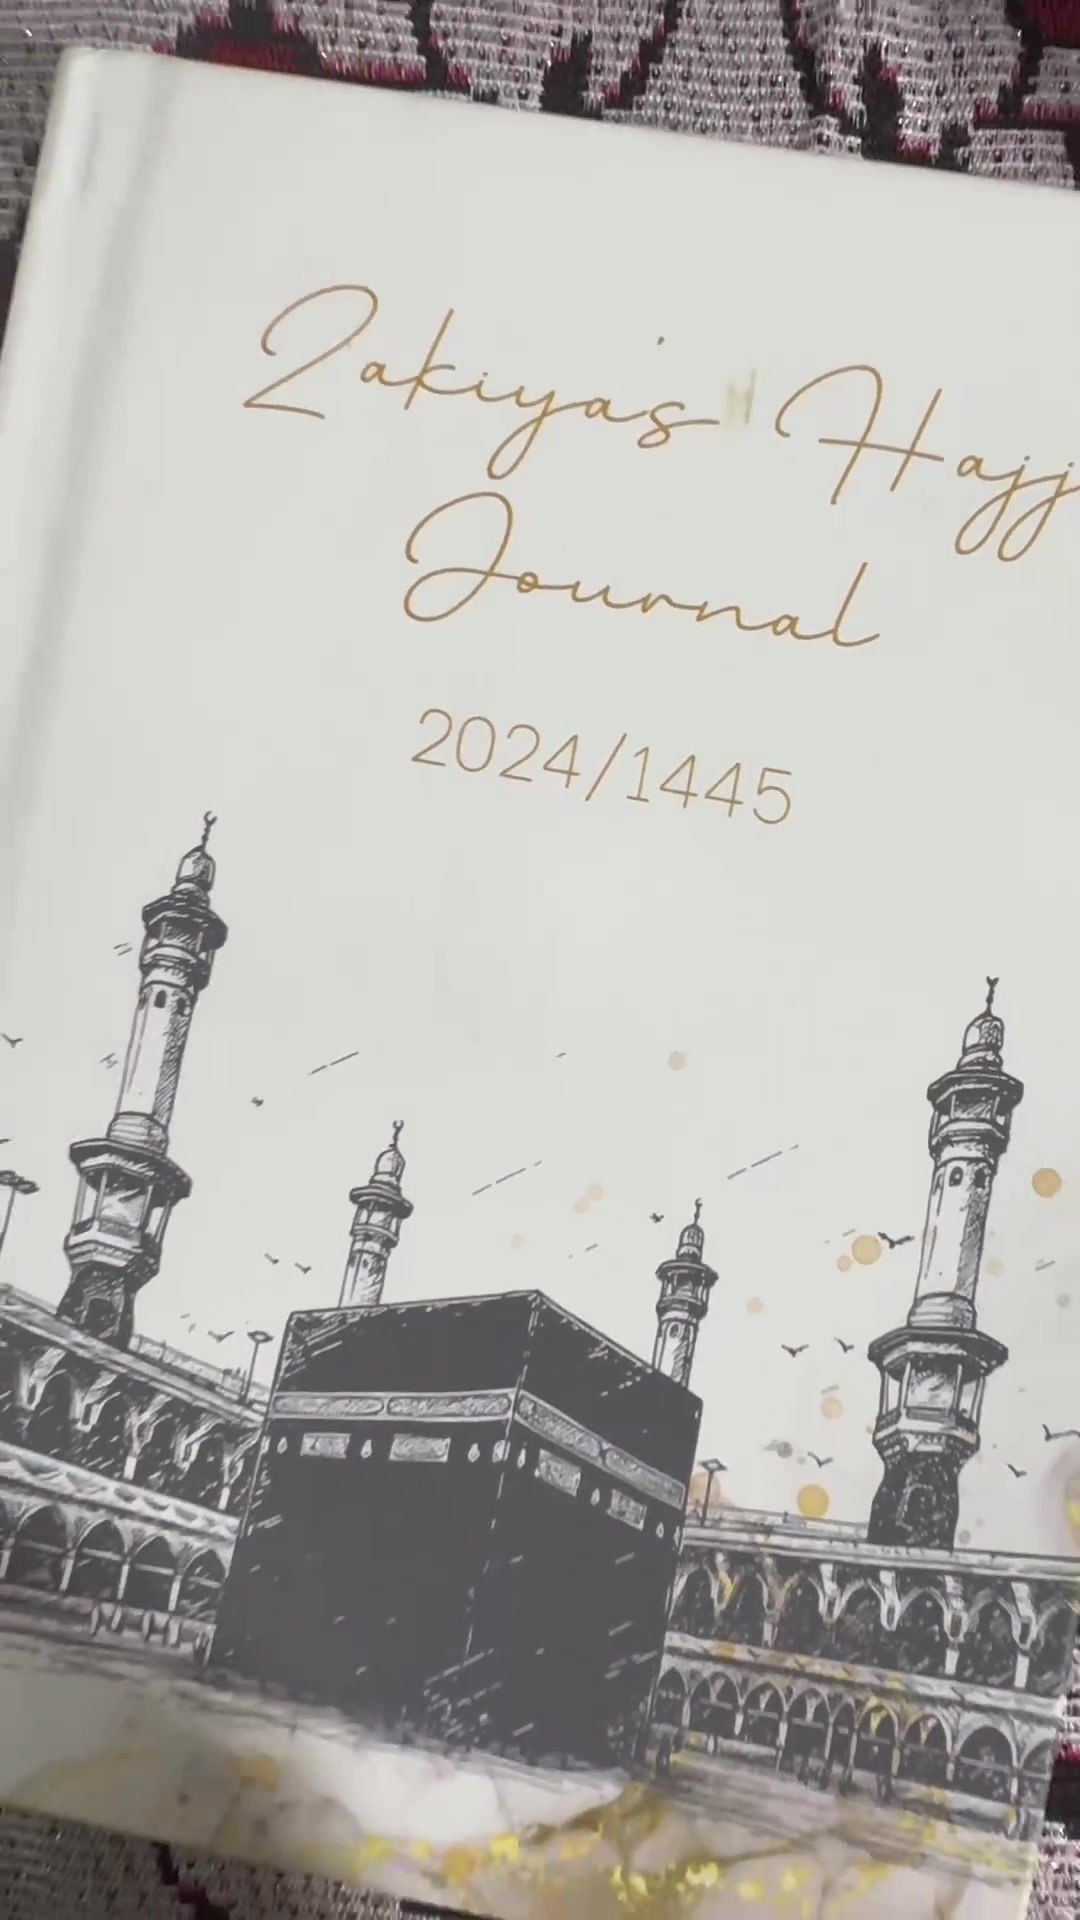 Zakiya's Hajj
Journal
2024/1445